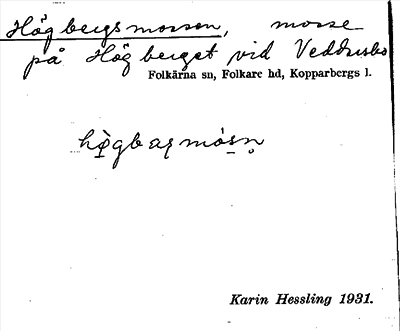 Högbergsmossen, mosse
på Högberget vid Veddarbo
Folkärna sn, Folkare hd, Kopparbergs l.
Karin Hessling 1931.